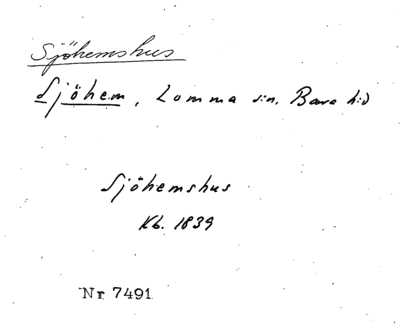 Sjöhemshus
Sjöhem, Lomma sn. Bara hd
Sjöhemshus
Kb. 1839
Nr 7491